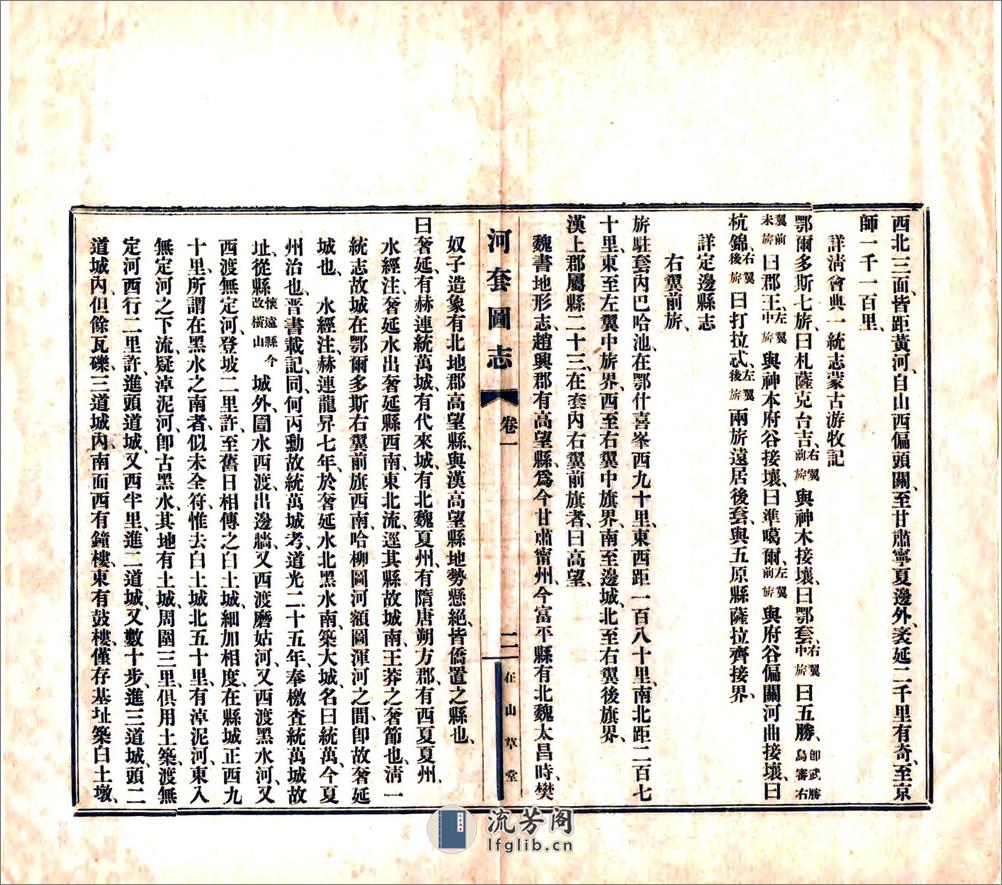 西北三面皆距黃河、自山西偏頭關、至甘肅寧夏邊外、袤延二千里有奇、至京
師一千一百里
詳清會典一統志蒙古游牧記
鄂爾多斯七旂、曰札薩克台吉、右翼前旂與神木接壤、曰鄂套、右翼中旂曰五勝、卽武勝烏審右
翼前末旂曰郡王、左翼中旂與神本府谷接壤、曰準噶爾、左翼前旂與府谷偏關河曲接壤、曰
杭錦、右翼後旂曰打拉忒、左翼後旂兩旂遠居後套、與五原縣薩拉齊接界、
詳定邊縣志
右翼前旂、
旂駐套內巴哈池、在鄂什喜峯西九十里、東西距一百八十里、南北距二百七
十里、東至左翼中旂界、西至右翼中旗界、南至邊城、北至右翼後旗界、
漢上郡屬縣二十三、在套內右翼前旗者、曰高望、
魏書地形志、趙興郡有高望縣、爲今甘肅甯州、今富平縣有北魏太昌時樊
河套圖志
卷一
二
在山草堂
奴子造象、有北地郡高望縣、與漢高望縣地勢懸絕、皆僑置之縣也、
曰奢延、有赫連統萬城、有代來城、有北魏夏州、有隋唐朔方郡、有西夏夏州、
水經注、奢延水出奢延縣西南、東北流逕其縣故城南、王莽之奢節也、淸一
統志、故城在鄂爾多斯右翼前旗西南、哈柳圖河、額圖渾河之間、卽故奢延
城也　水經注、赫連龍昇七年、於奢延水北黑水南、築大城、名曰統萬、今夏
州治也、晋書載記同、何丙勳故統萬城考、道光二十五年、奉檄查統萬城故
址、從縣懷遠縣今改橫山城外圁水西渡、出邊牆、又西渡蘑姑河、又西渡黑水河、又
西渡無定河、登坡二里許、至舊日相傳之白土城、細加相度、在縣城正西九
十里、所謂在黑水之南者、似未全符、惟去白土城北五十里、有淖泥河、東入
無定河之下流、疑淖泥河卽古黑水、其地有土城、周圍三里、俱用土築、渡無
定河西行二里許、進頭道城、又西半里、進二道城、又數十步、進三道城、頭二
道城內但餘瓦礫、三道城內南面西有鐘樓、東有鼓樓、僅存基址、築白土墩、
流芳阁
lfglib.cn